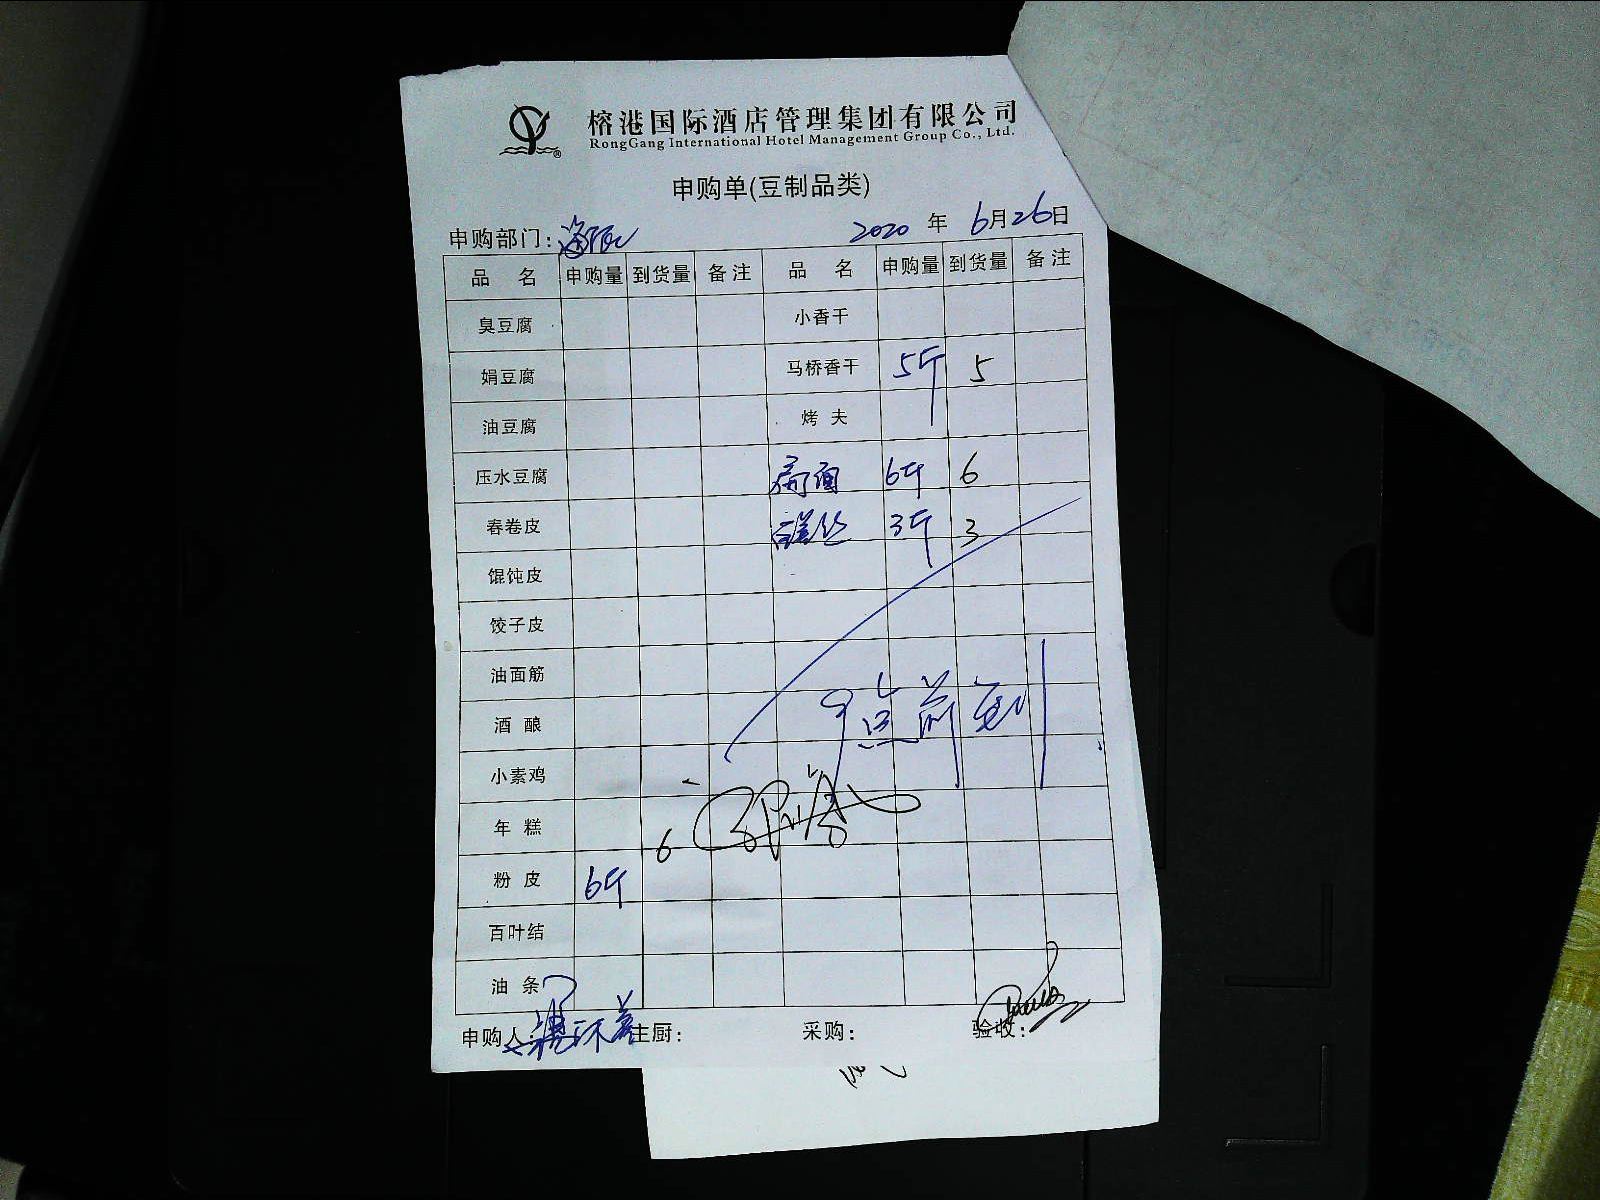 榕港国际酒店管理集团有限公司
RongGang International Hotel Management Group Co., Ltd.
申购单(豆制品类)
申购部门：海 2020 年 6月26日
品 名 申购量 到货量 备注 品 名 申购量 到货量 备注
臭豆腐 小香干
娟豆腐 马桥香干 5斤 5
油豆腐 烤夫
压水豆腐 面 6斤 6
春卷皮 3斤 3
馄饨皮
饺子皮
油面筋
酒酿 9点前到
小素鸡
年糕 6
粉皮 6斤
百叶结
油条
申购人： 主厨： 采购： 验收：